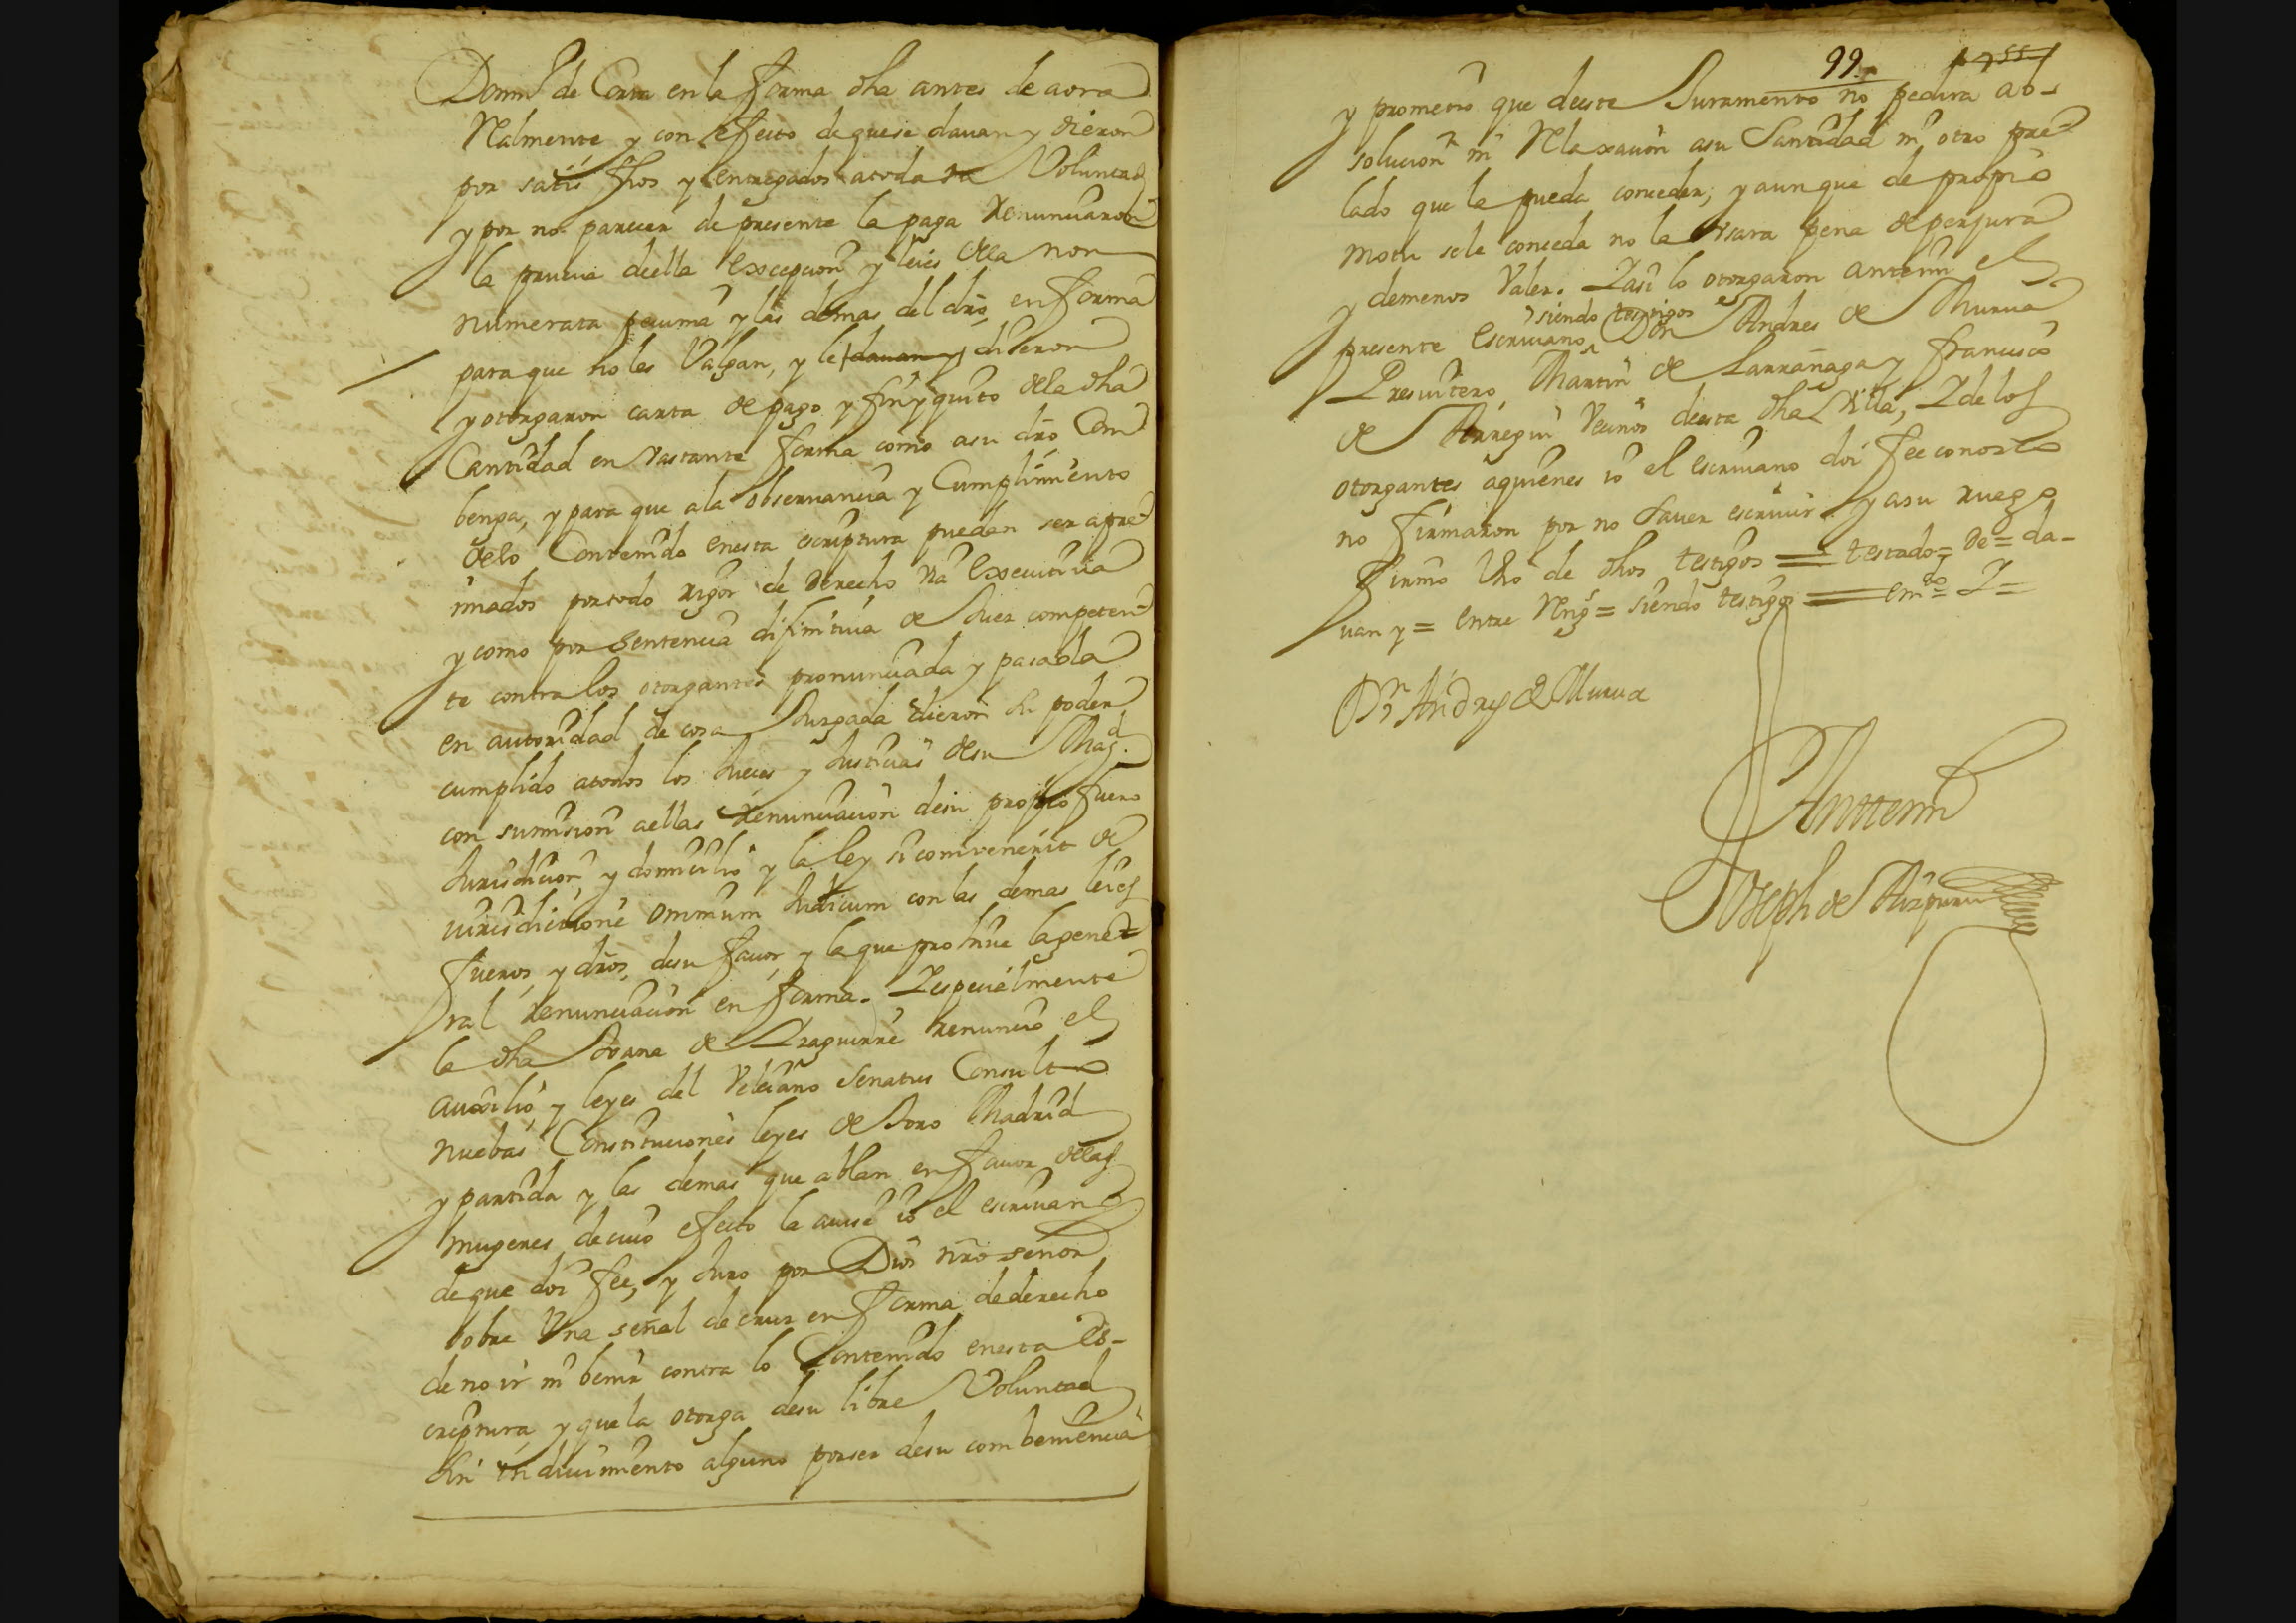 Domin.º de Corta en la forma dha antes de aora
Realmente y con efecto de que se dauan y dieron
por satis fhos y entregados atoda su Voluntad
y por no parecer de presente la paga Renunciaron
la prueua deella Excepcion y leies dela non
numerata pecunia y las demas del dro, en forma
para que no les Valgan, y le dauan y dieron
y otorgaron carta de pago y finyquito dela dha
Cantidad en vastante forma como a su dro Com
benga, y para que ala obseruancia y Cumplimiento
delo Contenido enesta escriptura puedan ser apre
miados por todo rigor de Derecho via Executiua
y como por sentencia difinitiua de Juez competen
te contra los otorgantes pronunciada y pasada
en autoridad de cosa Juzgada dieron su poder
cumplido atodos los Jueces y Justicias desu Magd.
con sumision aellas Renunciacion desu propio fuero
Jurisdicion, y domicilio y la ley si combenerit de
iurisdictione omnium Judicum con las demas leies
fueros, y dros, desu fauor, y la que prohiue la gene
ral Renunciacion en forma. Y especialmente
la dha Joana de Yzaguirre renuncio el
auxilio, y leyes del Veleiano Senatus Consulto
nuebas Constituciones leyes de Toro Madrid
y partida y las demas que ablan en fauor delas
mugeres de cuio efecto la auise io el escriuano
de que doi fee, y Juro por Dios nro señor
sobre Vna señal de cruz en forma de derecho
de no ir ni benir contra lo Contenido enesta Es-
criptura, y que la otorga desu libre Voluntad
sin induzimiento alguno por ser desu combeniencia
99
y prometio que deeste Juramento no pedira ab-
solucion ni Relaxacion asu Santidad ni otro pre
lado que la pueda conceder; y aunque de propio
motu sele conceda no la Vsara pena de perjura
y demenos Valer. Y asi lo otorgaron antemi el
siendo testigos
presente Escriuano Don Andres de Murua
Presuitero, Martin de Larrañaga y francisco
de Arregui Vecinos deesta dha Villa, Y de los
otorgantes aquienes io el escriuano doi fee conozco
no firmaron por no sauer escriuir y asu ruego
firmo Vno de dhos testigos = testado= De= da-
uan y = entre Rengs = siendo testigos = emdo= Y=
Dn Andres de Murua
Antemi
Joseph de Aizpuru